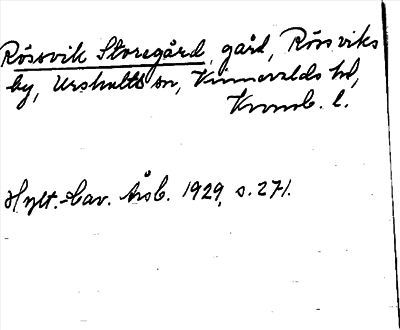 Rössvik Storegård, gård, Rössviks
by, Urshults sn, Kinnevalds hd,
Kronob. l.
Hylt.-Cav. Årsb. 1929, s. 271.